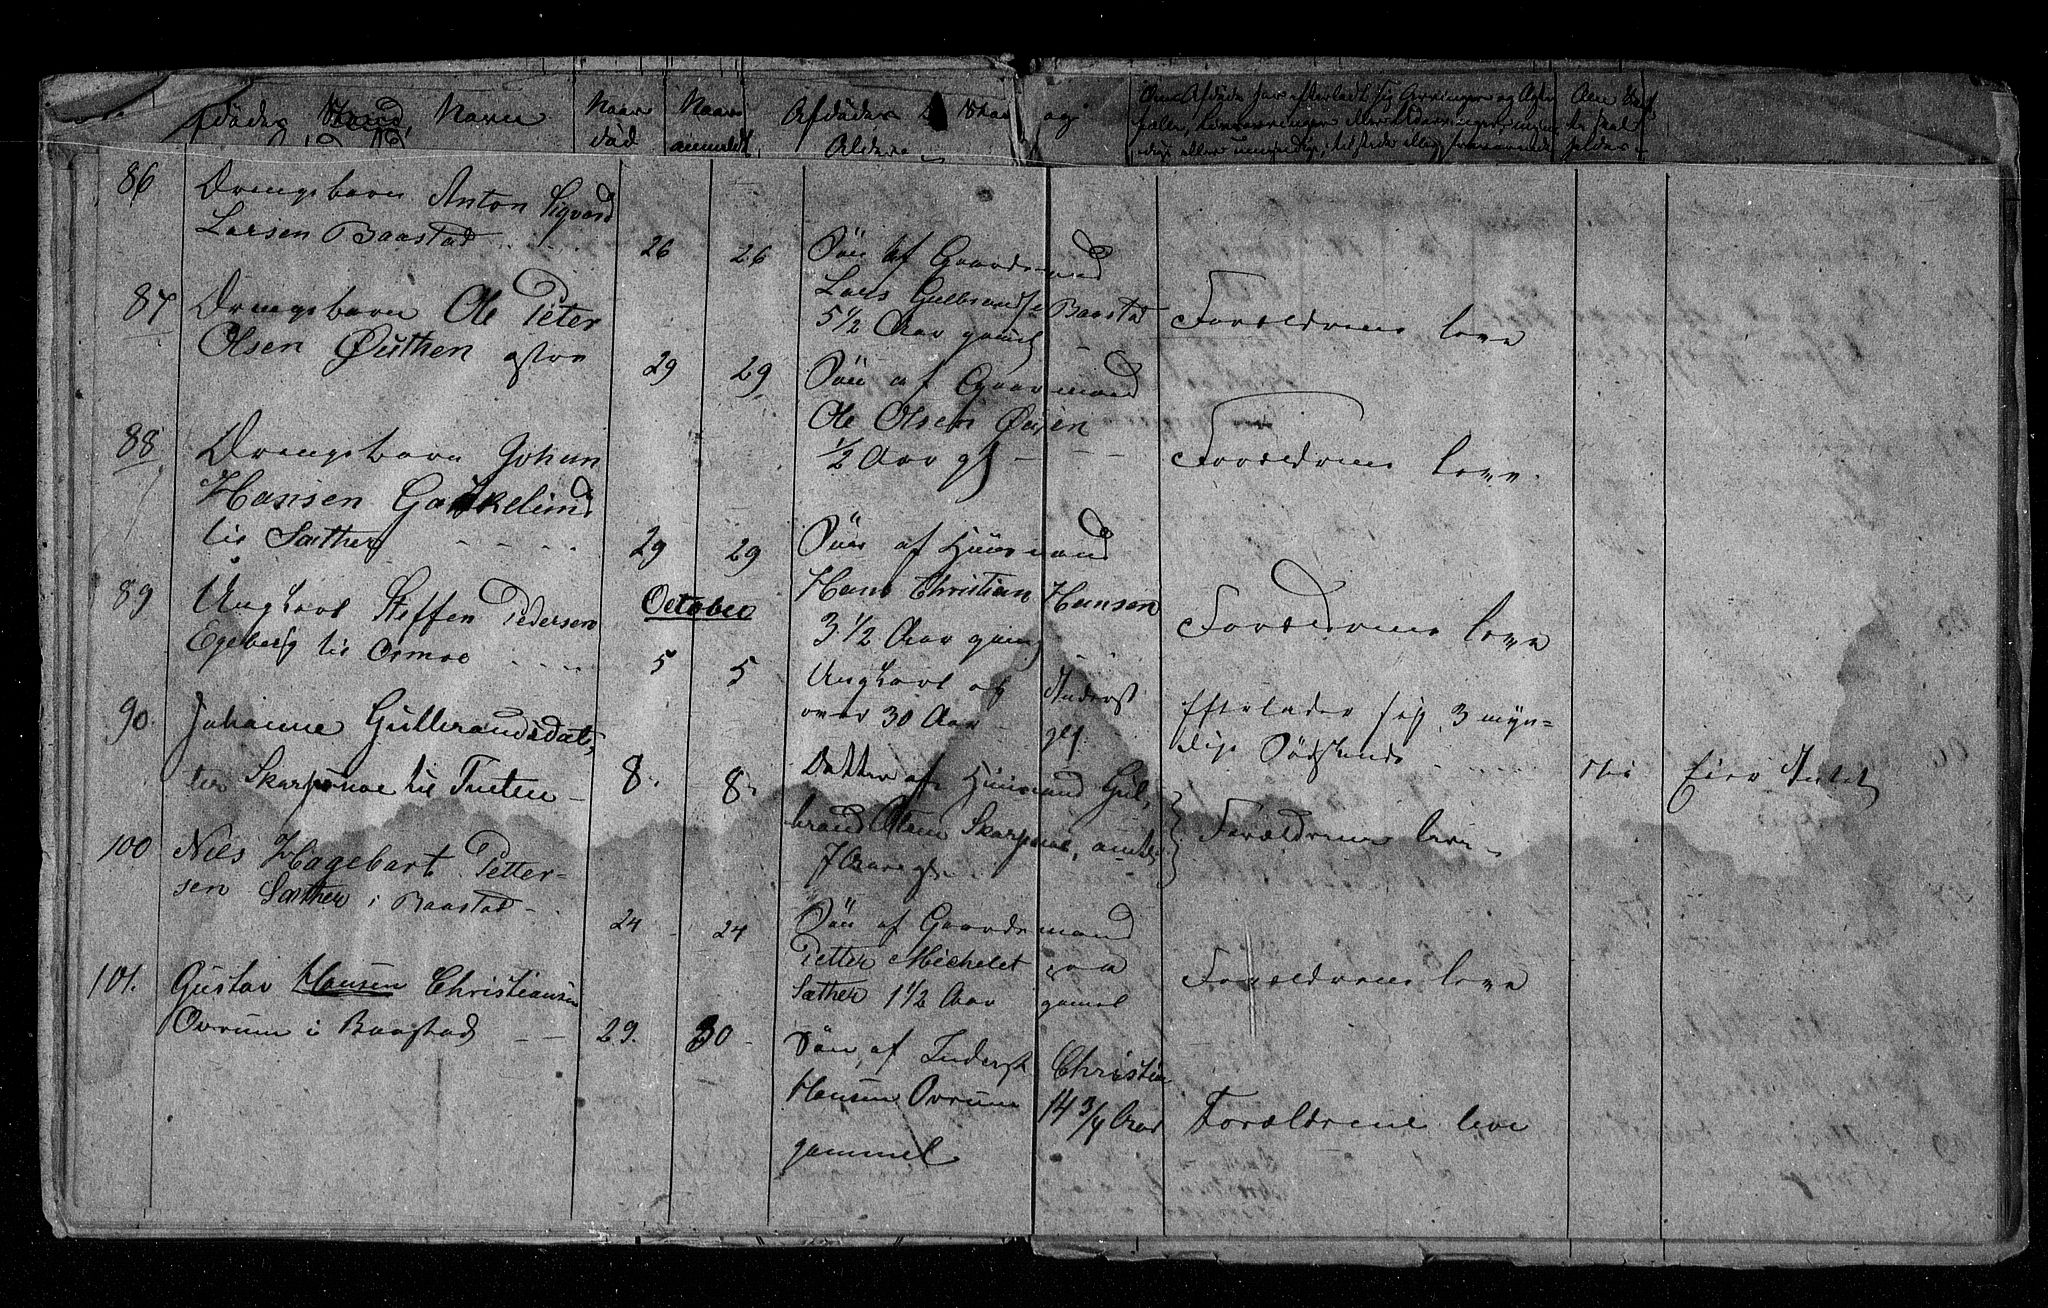 Afdødes Stand, Navn
Naar død
Naar anmeldt
Afdødes
Alder
Stand og
Om Afdøde har efterladt sig Arvinger og
86 Drengebarn Anton Sigvard
Larsen Baastad
26 26
Søn af Gaardmand
Lars Gulbrands. Baastad
5 1/2 Aar gamel
Forældrene leve
87 Drengebarn Ole Peter
Olsen Øuthen østre
29 29
Søn af Gaarmand
Ole Olsen Øujen
1/2 Aar gl
Forældrene leve
88 Drengebarn Johan
Hansen
til Sæther
29 29
Søn af Huusmand
Hans Christian Hansen
3 1/2 Aar gamel
Forældrene leve
October
89 Ungkarl Steffen Pedersen
Egeberg til Osmoe
5 5
Ungkarl og Inderst
over 30 Aar gl
Efterlader sig 3 myn-
dige Sødskende
Eier Intet
90. Johanne Gulbrandsdat-
ter Skarpsnoe til Tueten
8 8
Datter af Huusmand Gul-
brand Olsen Skarpsnoe, omtr.
7 Aar gl.
Forældrene leve
100 Nils Hagebart Petter-
sen Sæther i Baastad
24 24
Søn af Gaardmand
Petter Michelet paa
Sæther 1 1/2 Aar gamel
Forældrene leve
101. Gustav Hansen Christiansen
Ovrum i Baastad
29. 30
Søn af Inderst Christian
Hansen Ovrum 14 3/4 Aar
gammel
Forældrene leve